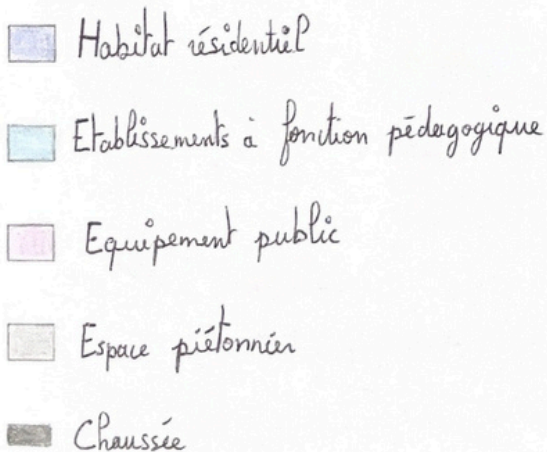 Habitat résidentiel
Etablissements à fonction pédagogique
Equipement public
Espace piétonnier
Chaussée